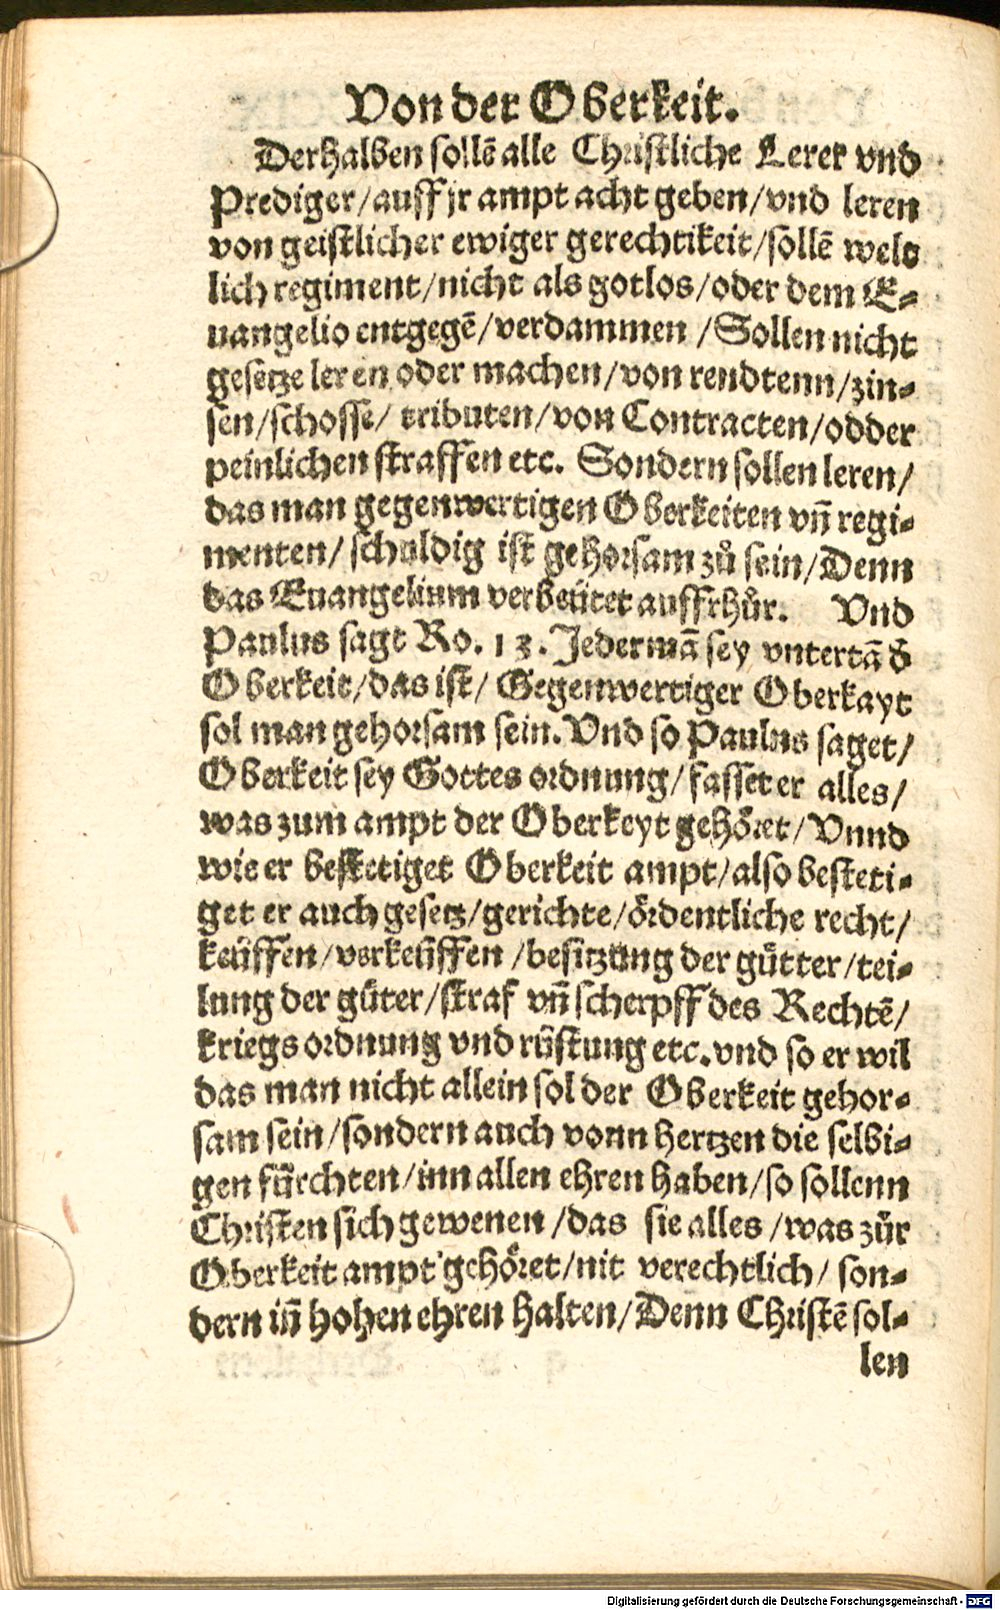 Von der Oberkeit.
Derhalben sollē alle Christliche Lerer vnd
Prediger/auff jr ampt acht geben/vnd leren
von geistlicher ewiger gerechtikeit/sollē welt
lich regiment/nicht als gotlos/oder dem E⸗
uangelio entgegē/verdammen /Sollen nicht
gesetze leren oder machen/von rendtenn/zin⸗
sen/schosse/ tributen/von Contracten/odder
peinlichen straffen etc. Sondern sollen leren/
das man gegenwertigen Oberkeiten vn̄ regi⸗
menten/ schuldig ist gehorsam zů sein/Denn
das Euangelium verbeütet auffrhůr. Vnd
Paulus sagt Ro. 13. Jedermā sey vntertā d̄
Oberkeit/das ist/ Gegenwertiger Oberkayt
sol man gehorsam sein. Vnd so Paulus saget/
Oberkeit sey Gottes ordnung/fasset er alles/
was zum ampt der Oberkeyt gehöret/Vnnd
wie er bestetiget Oberkeit ampt/also besteti⸗
get er auch gesetz/gerichte/ördentliche recht/
keüffen/verkeüffen /besitzung der gůtter/tei⸗
lung der güter/straf vn̄ scherpff des Rechtē/
kriegs ordnung vnd rüstung etc. vnd so er wil
das man nicht allein sol der Oberkeit gehor⸗
sam sein/sondern auch vonn hertzen die selbi⸗
gen fürchten/inn allen ehren haben/so sollenn
Christen sich gewenen /das sie alles /was zůr
Oberkeit ampt gehöret/nit verechtlich/ son⸗
dern in̄ hohen ehren halten/Denn Christē sol⸗
len
Digitalisierung gefördert durch die Deutsche Forschungsgemeinschaft - DFG